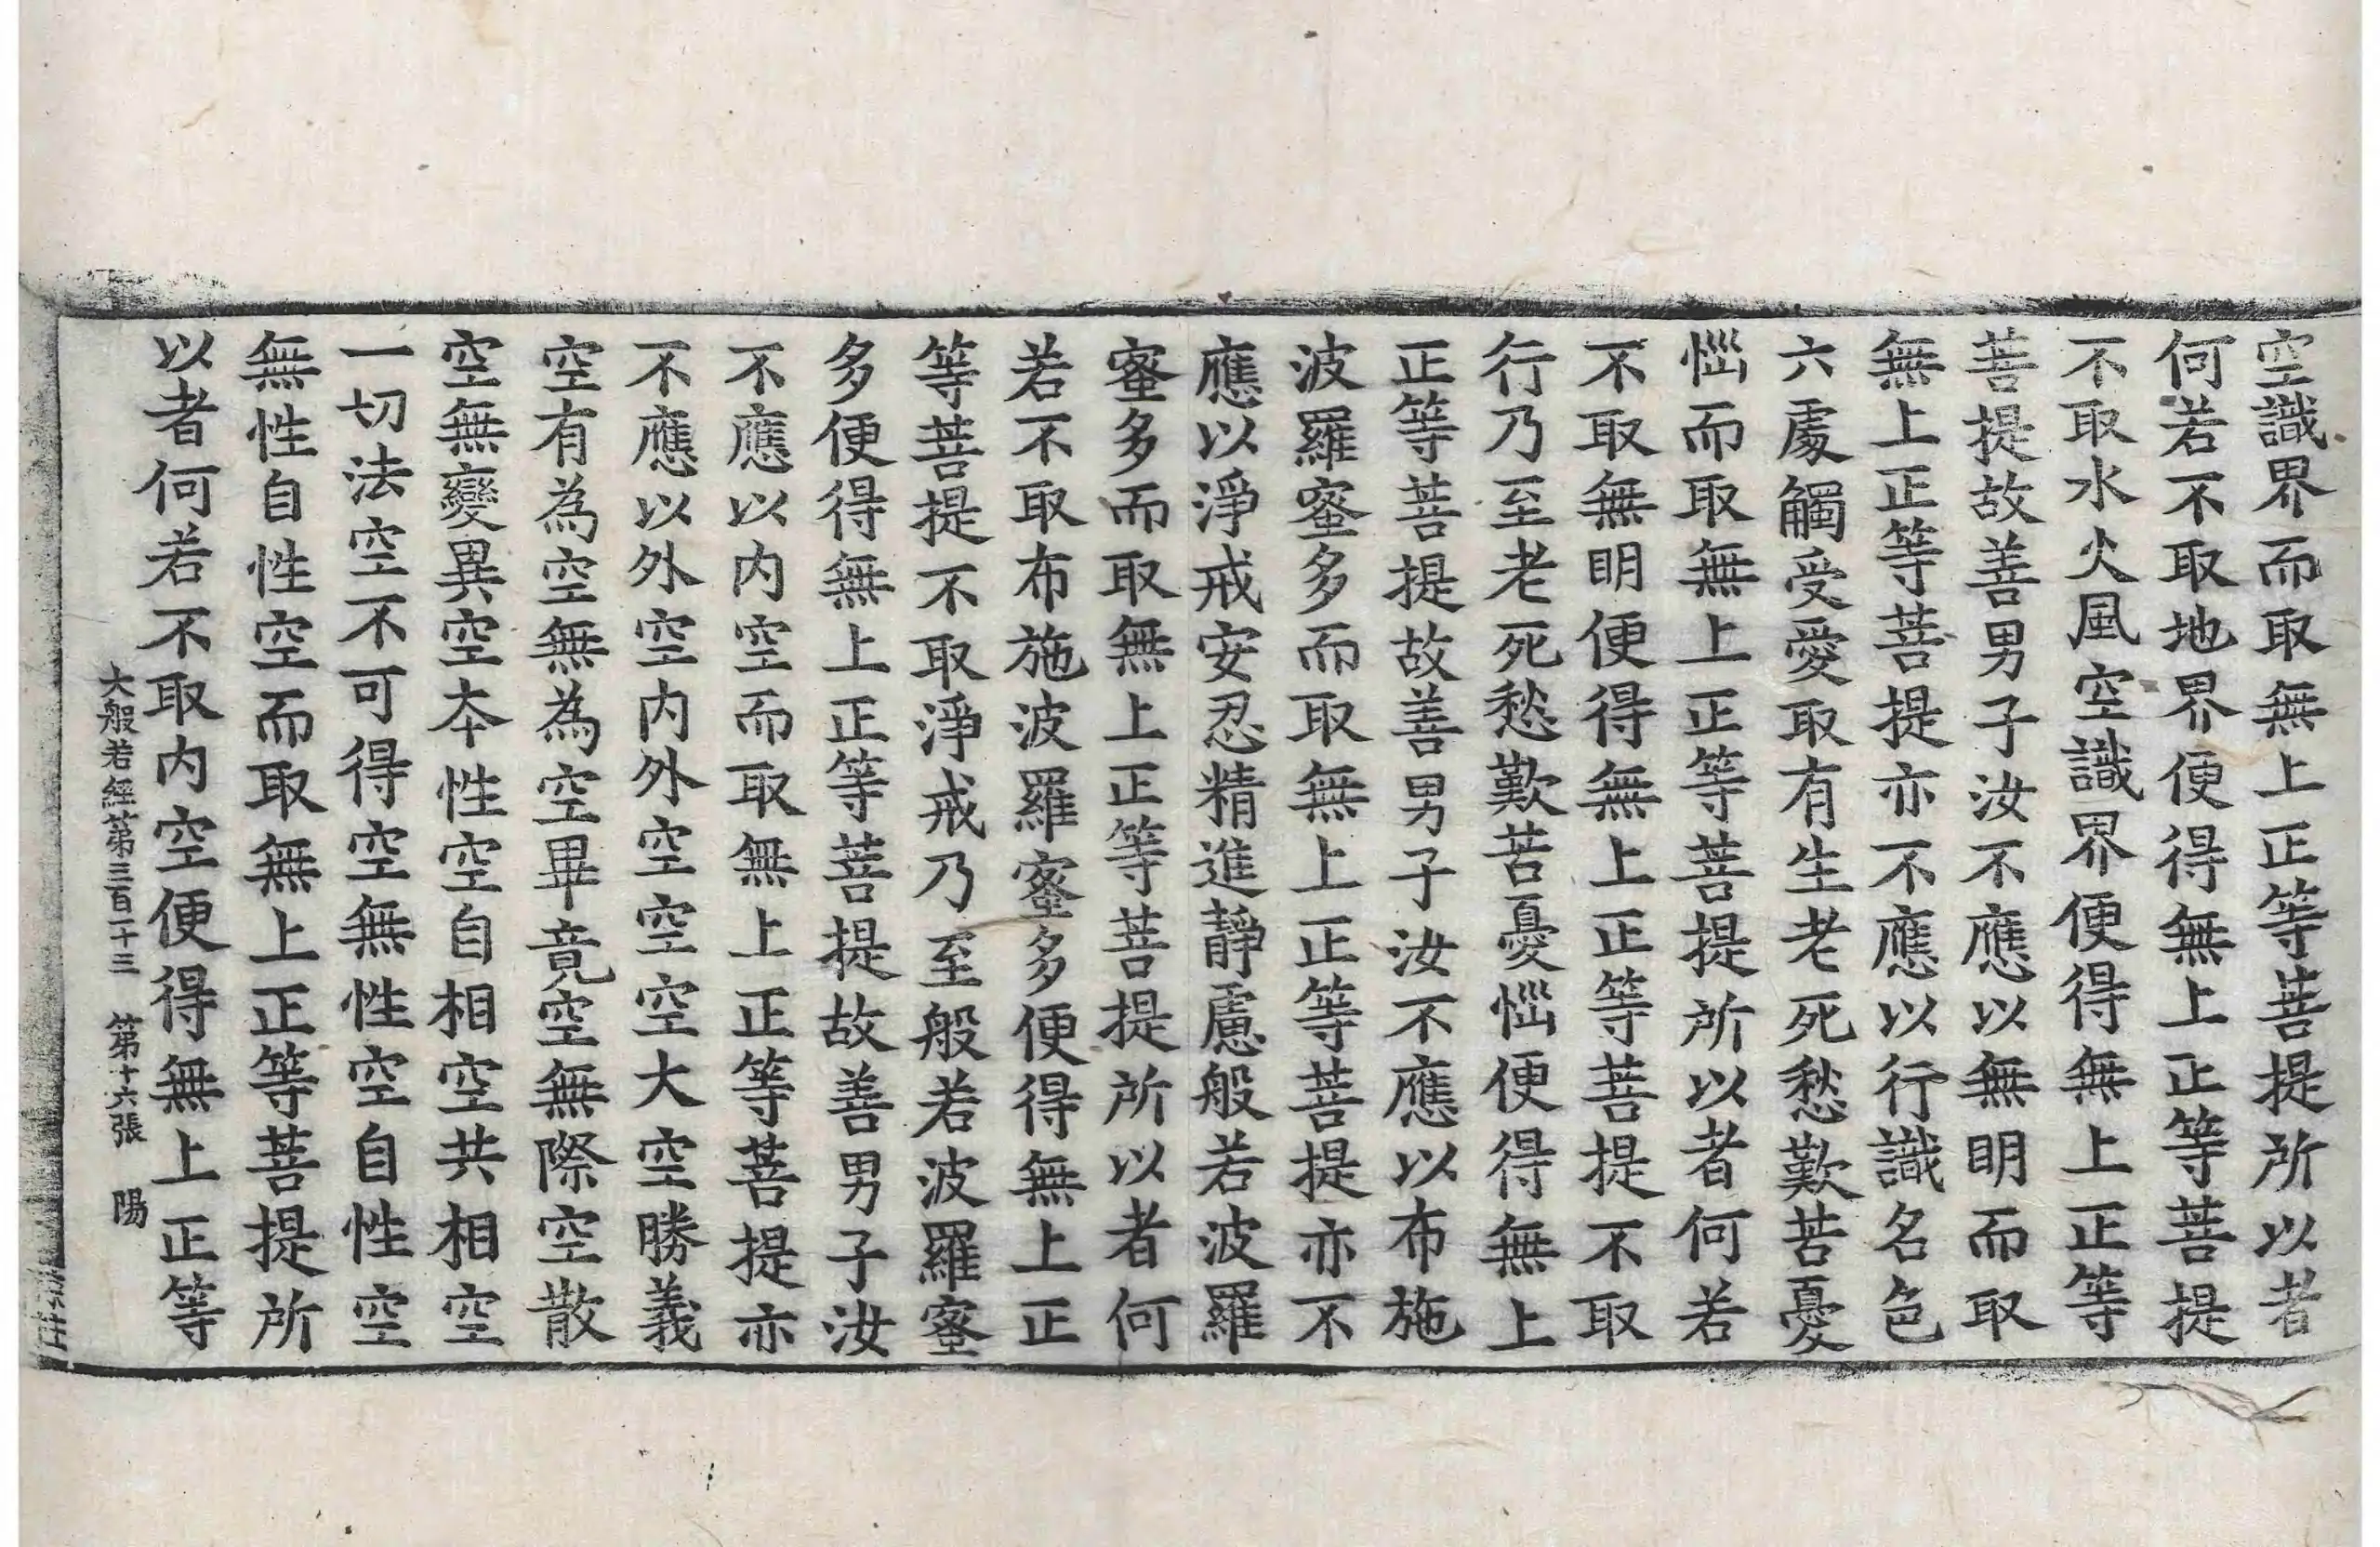 空識界而取無上正等菩提所以者
何若不取地界便得無上正等菩提
不取水火風空識界便得無上正等
菩提故善男子汝不應以無明而取
無上正等菩提亦不應以行識名色
六處觸受愛取有生老死愁歎苦憂
惱而取無上正等菩提所以者何若
不取無明便得無上正等菩提不取
行乃至老死愁歎苦憂惱便得無上
正等菩提故善男子汝不應以布施
波羅蜜多而取無上正等菩提亦不
應以淨戒安忍精進靜慮般若波羅
蜜多而取無上正等菩提所以者何
若不取布施波羅蜜多便得無上正
等菩提不取淨戒乃至般若波羅蜜
多便得無上正等菩提故善男子汝
不應以内空而取無上正等菩提亦
不應以外空内外空空空大空勝義
空有為空無為空畢竟空無際空散
空無變異空本性空自相空共相空
一切法空不可得空無性空自性空
無性自性空而取無上正等菩提所
以者何若不取内空便得無上正等
大般若經第三百二十三 第十六張 陽